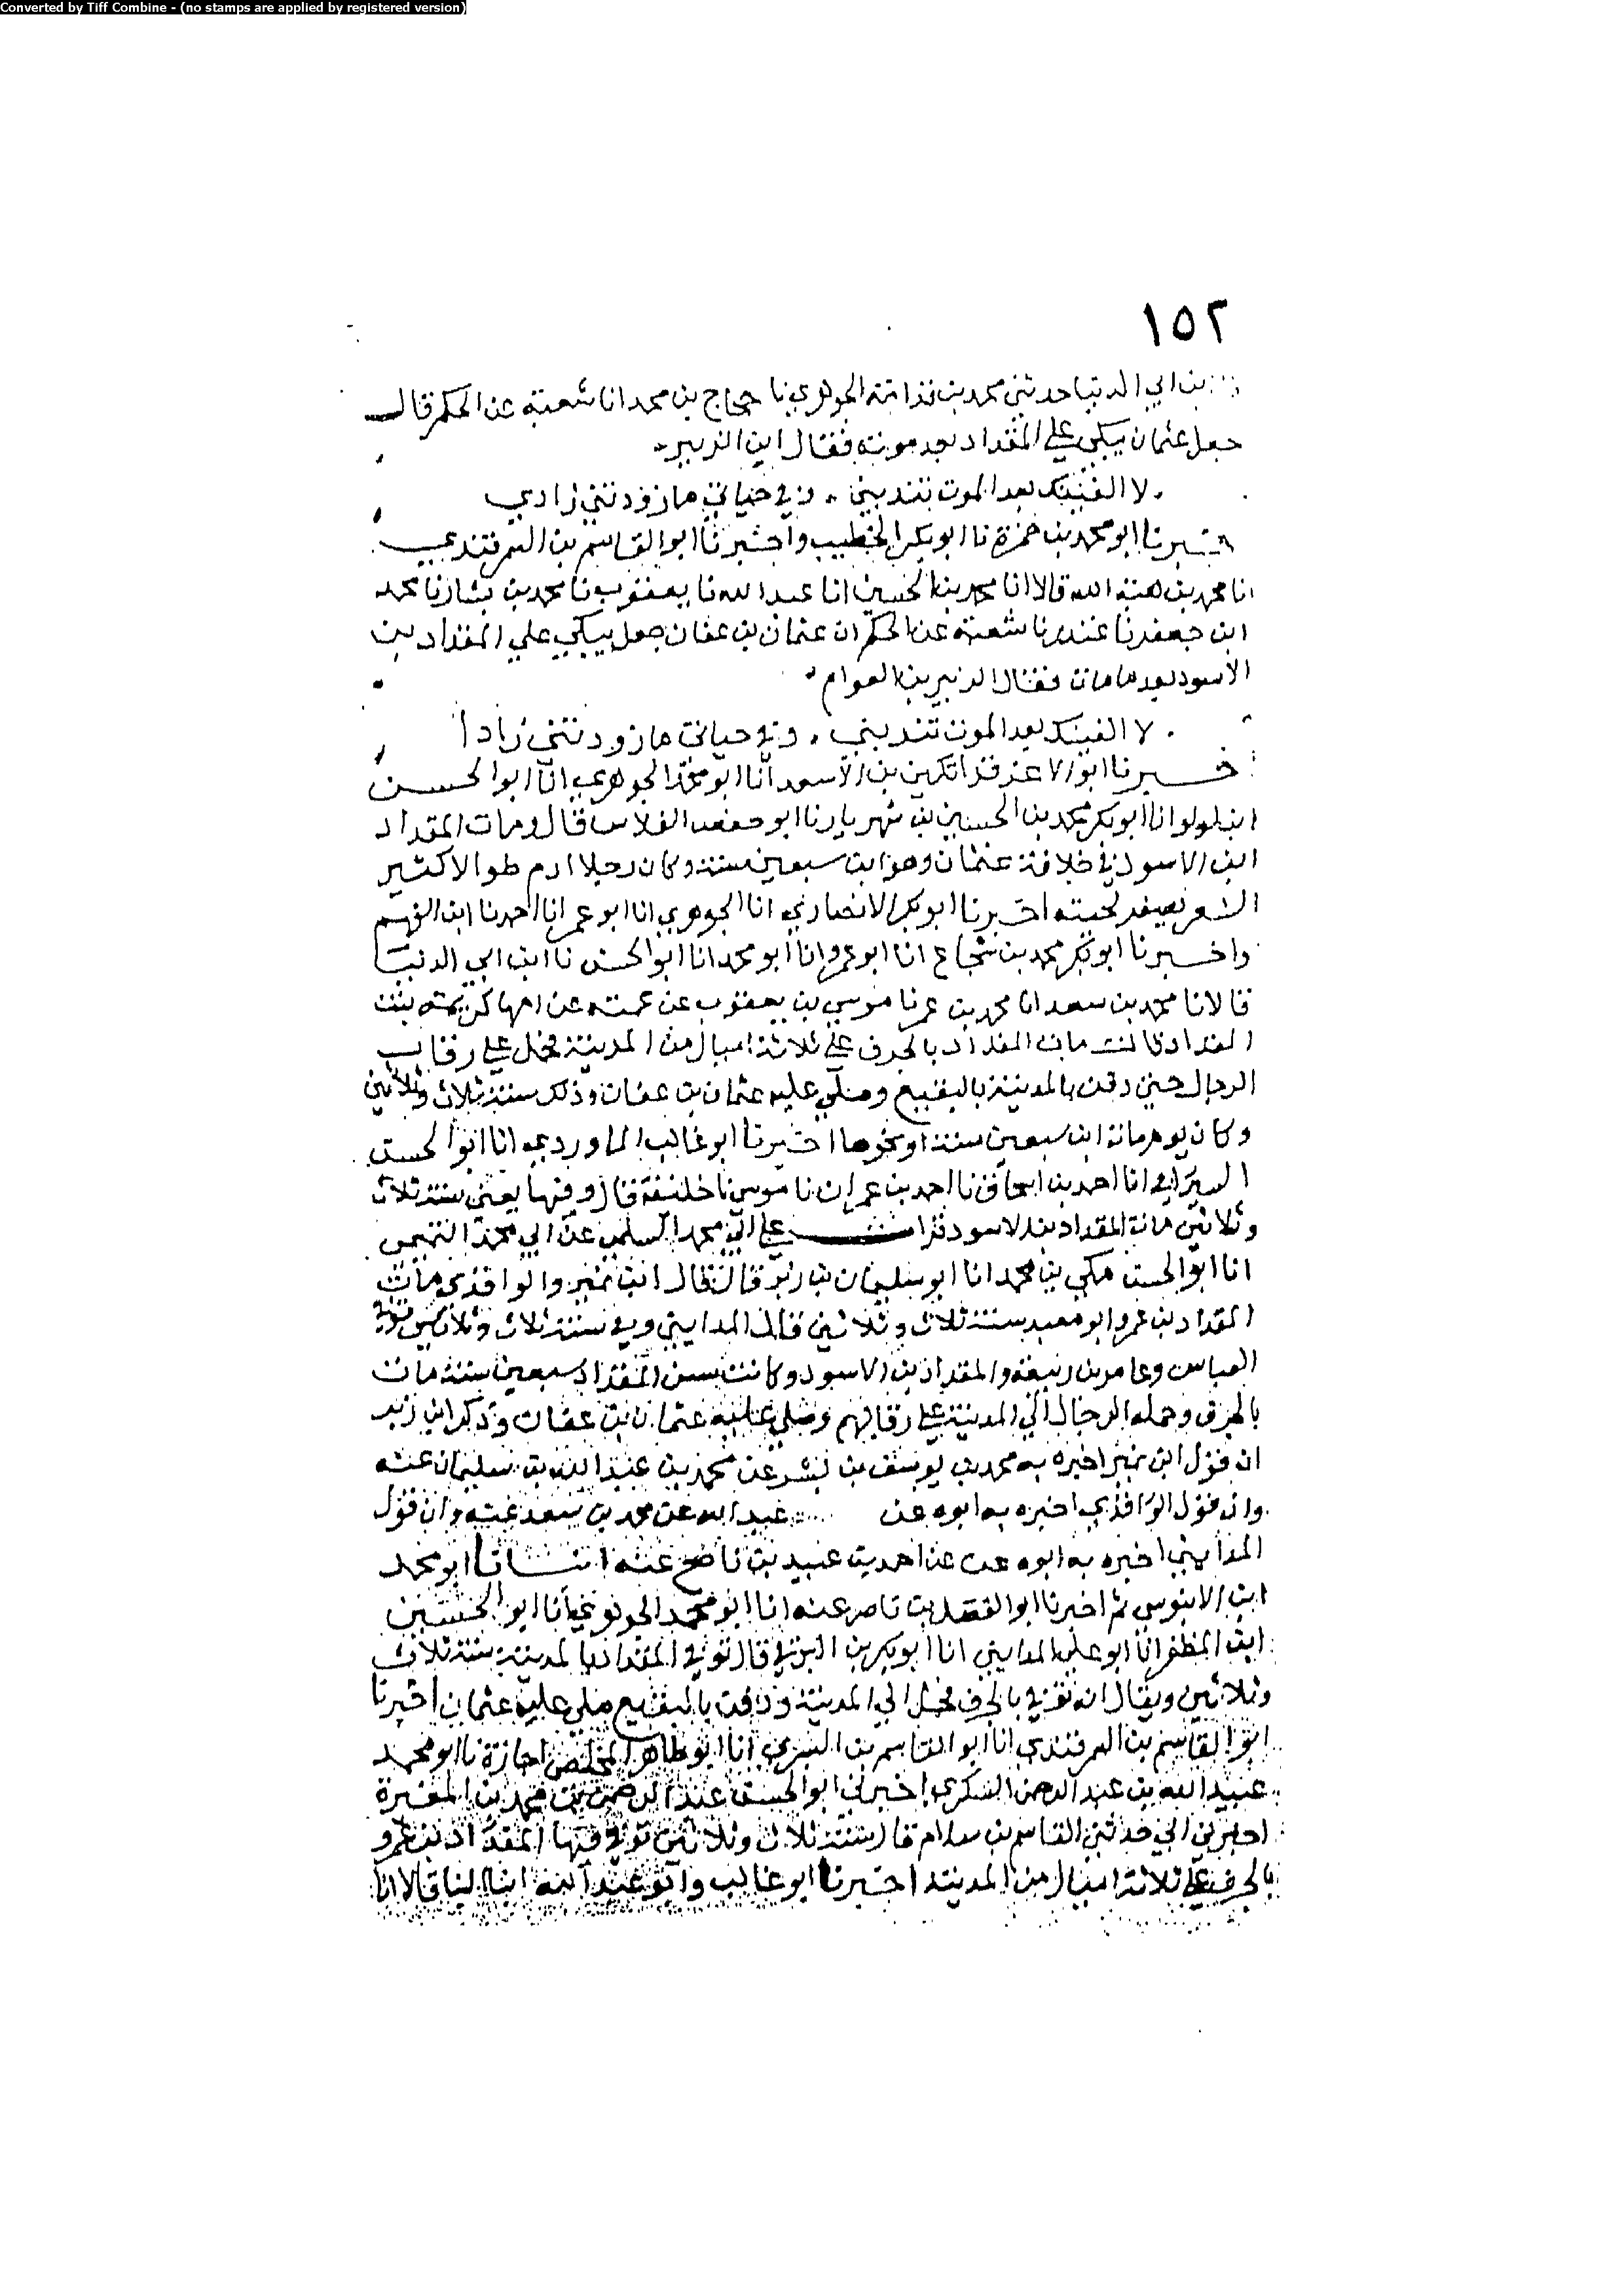 Converted by Tiff Combine - (no stamps are applied by registered version)
١٥٢
بن ابي الدنيا حدثني محمد بن قدامة الجوهري نا حجاج بن محمد انا شعبة عن الحكم قال
جعل عثمان يبكي علي المقداد بعد موته فقال ابن الزبير
لا الفينك بعد الموت تندبني وفي حياتي ما زودتني زادي
ابو محمد بن حمزة نا ابو بكر الخطيب واخبرنا ابو القاسم بن السمرقندي
انا محمد بن هبة الله قالا انا محمد بن الحسين انا عبد الله نا يعقوب نا محمد بن بشار نا محمد
ابن جعفر نا غندر نا شعبة عن الحكم ان عثمان بن عفان جعل يبكي علي المقداد بن
الاسود بعد ما مات فقال الزبير بن العوام
لا الفينك بعد الموت تندبني وفي حياتي ما زودتني زادا
خبرنا ابو الاعز قراتكين بن الاسعد انا ابو محمد الجوهري انا ابو الحسن
ابن لولو انا ابو بكر محمد بن الحسين بن شهريار نا ابو حفص الفلاس قال ومات المقداد
ابن الاسود في خلافة عثمان وهو ابن سبعين سنة وكان رجلا ادم طوالا كثير
الشعر يصفر لحيته اخبرنا ابو بكر الانصاري انا الجوهري انا ابو عمر انا احمد نا ابن الفهم
واخبرنا ابو بكر محمد بن شجاع انا ابو عمرو انا ابو محمد انا ابو الحسن نا ابن ابي الدنيا
قالا نا محمد بن سعد انا محمد بن عمر نا موسي بن يعقوب عن عمته عن امها كريمة بنت
المقداد قالت مات المقداد بالجرف علي ثلاثة اميال من المدينة فحمل علي رقاب
الرجال حتي دفن بالمدينة بالبقيع وصلي عليه عثمان بن عفان وذلك سنة ثلاث وثلاثين
وكان يوم مات ابن سبعين سنة او نحوها اخبرنا ابو غالب الماوردي انا ابو الحسن
السيرافي انا احمد بن اسحاق نا احمد بن عمران نا موسي نا خليفة قال وفيها يعني سنة ثلاث
وثلاثين مات المقداد بن الاسود قرات علي ابي محمد السلمي عن ابي محمد التميمي
انا ابو الحسن مكي بن محمد انا ابو سليمان بن زبر قال قال ابن نمير والواقدي مات
المقداد بن عمرو ابو معبد سنة ثلاث وثلاثين قال المدايني وفي سنة ثلاث وثلاثين توفي
العباس وعامر بن ربيعة والمقداد بن الاسود وكانت سن المقداد سبعين سنة مات
بالجرف وحمله الرجال الي المدينة علي رقابهم وصلي عليه عثمان بن عفان وذكر ابن زبر
ان قول ابن نمير اخبره به محمد بن يوسف بن بشر عن محمد بن عبد الله بن سليمان عنه
وان قول الواقدي اخبره به ابوه عن عبد الله عن محمد بن سعد عنه وان قول
المدايني اخبره به ابوه عن احمد بن عبيد بن ناصح عنه انبانا ابو محمد
ابن الابنوسي ثم اخبرنا ابو الفضل بن ناصر عنه انا ابو محمد الجوهري انا ابو الحسين
ابن المظفر انا ابو علي المدايني انا ابو بكر بن البرقي قال توفي المقداد بالمدينة سنة ثلاث
وثلاثين ويقال انه توفي بالجرف فحمل الي المدينة ودفن بالبقيع صلي عليه عثمان اخبرنا
ابو القاسم بن السمرقندي انا ابو القاسم بن البسري انا ابو طاهر المخلص اجازة نا ابو محمد
عبيد الله بن عبد الرحمن السكري اخبرني ابو الحسن عبد الرحمن بن محمد بن المغيرة
اخبرني ابي حدثني القاسم بن سلام قال سنة ثلاث وثلاثين توفي فيها المقداد بن عمرو
بالجرف علي ثلاثة اميال من المدينة اخبرنا ابو غالب وابو عبد الله ابنا البنا قالا انا